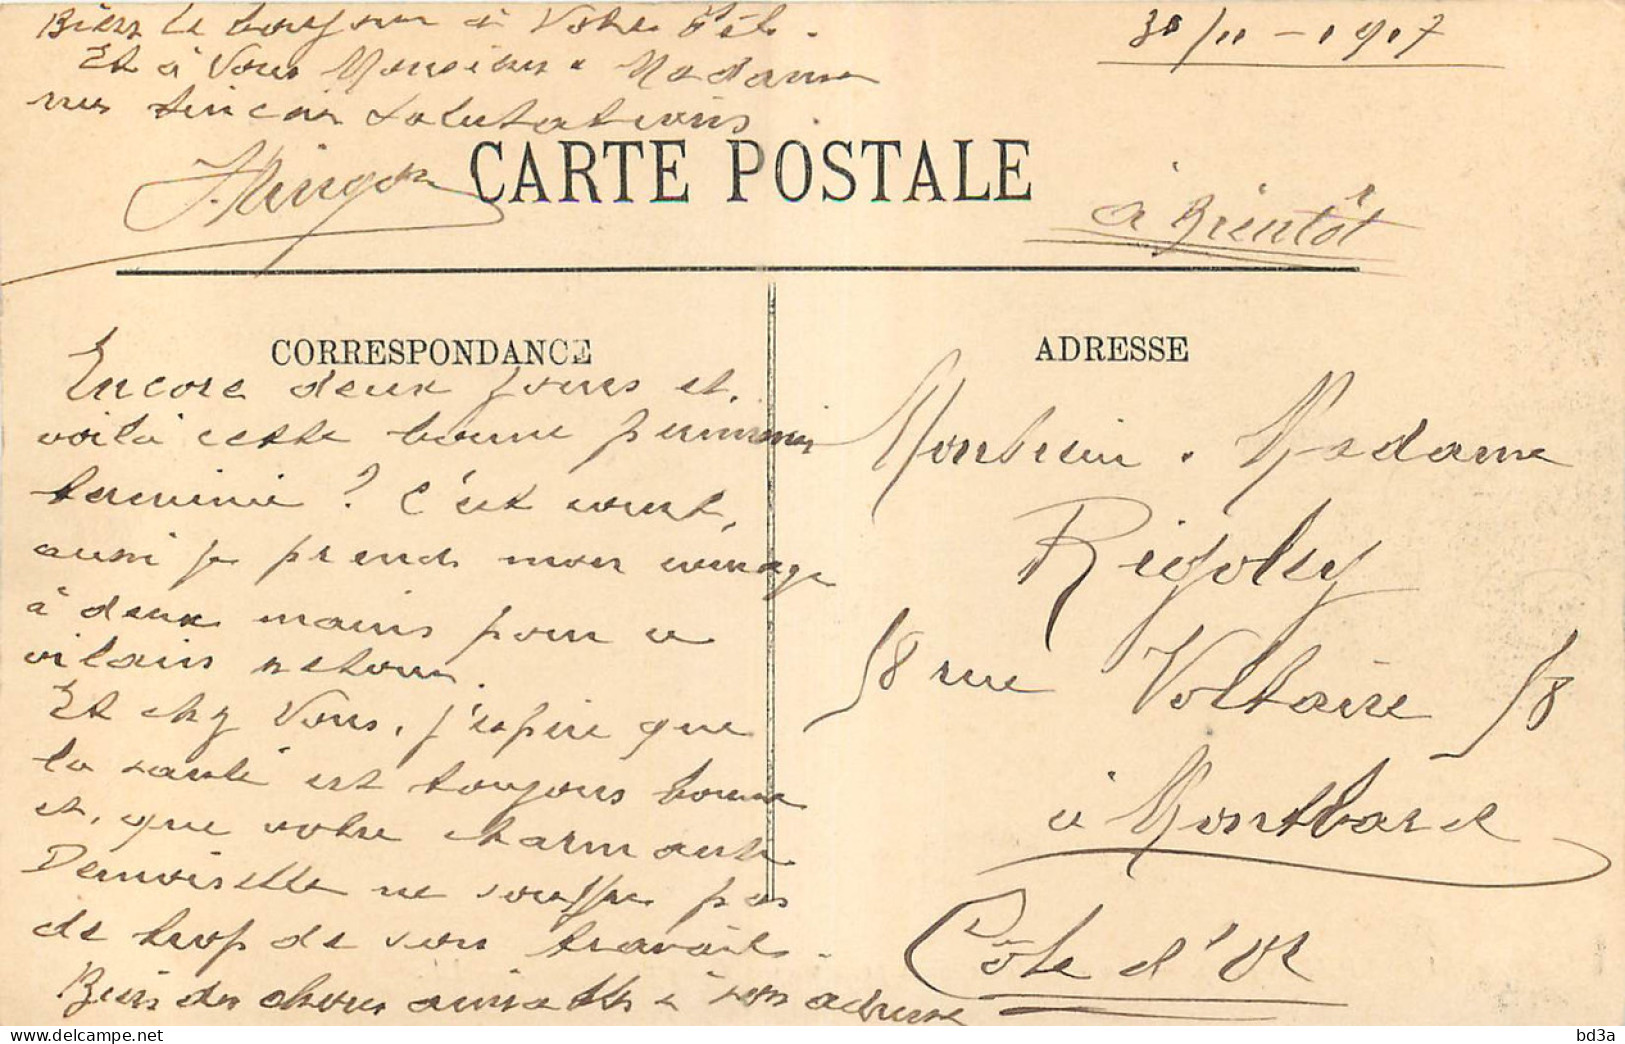 Bien le bonjour à Votre
Et à Vous Monsieur . Madame
nos sincères salutations
30/11 - 1917
CARTE POSTALE
à Bientôt
CORRESPONDANCE
Encore deux jours et,
voilà cette bonne permission
terminée ? C'est court,
aussi je prends mon courage
à deux mains pour ce
vilain retour.
Et chez Vous, j'espère que
la santé est toujours bonne
et, que votre charmante
Demoiselle ne souffre pas
de trop de son travail.
Bien des choses aimables à son adresse
ADRESSE
Monsieur . Madame
Rigoley
58 rue Voltaire 58
à Montbard
Côte d'Or
bd3a